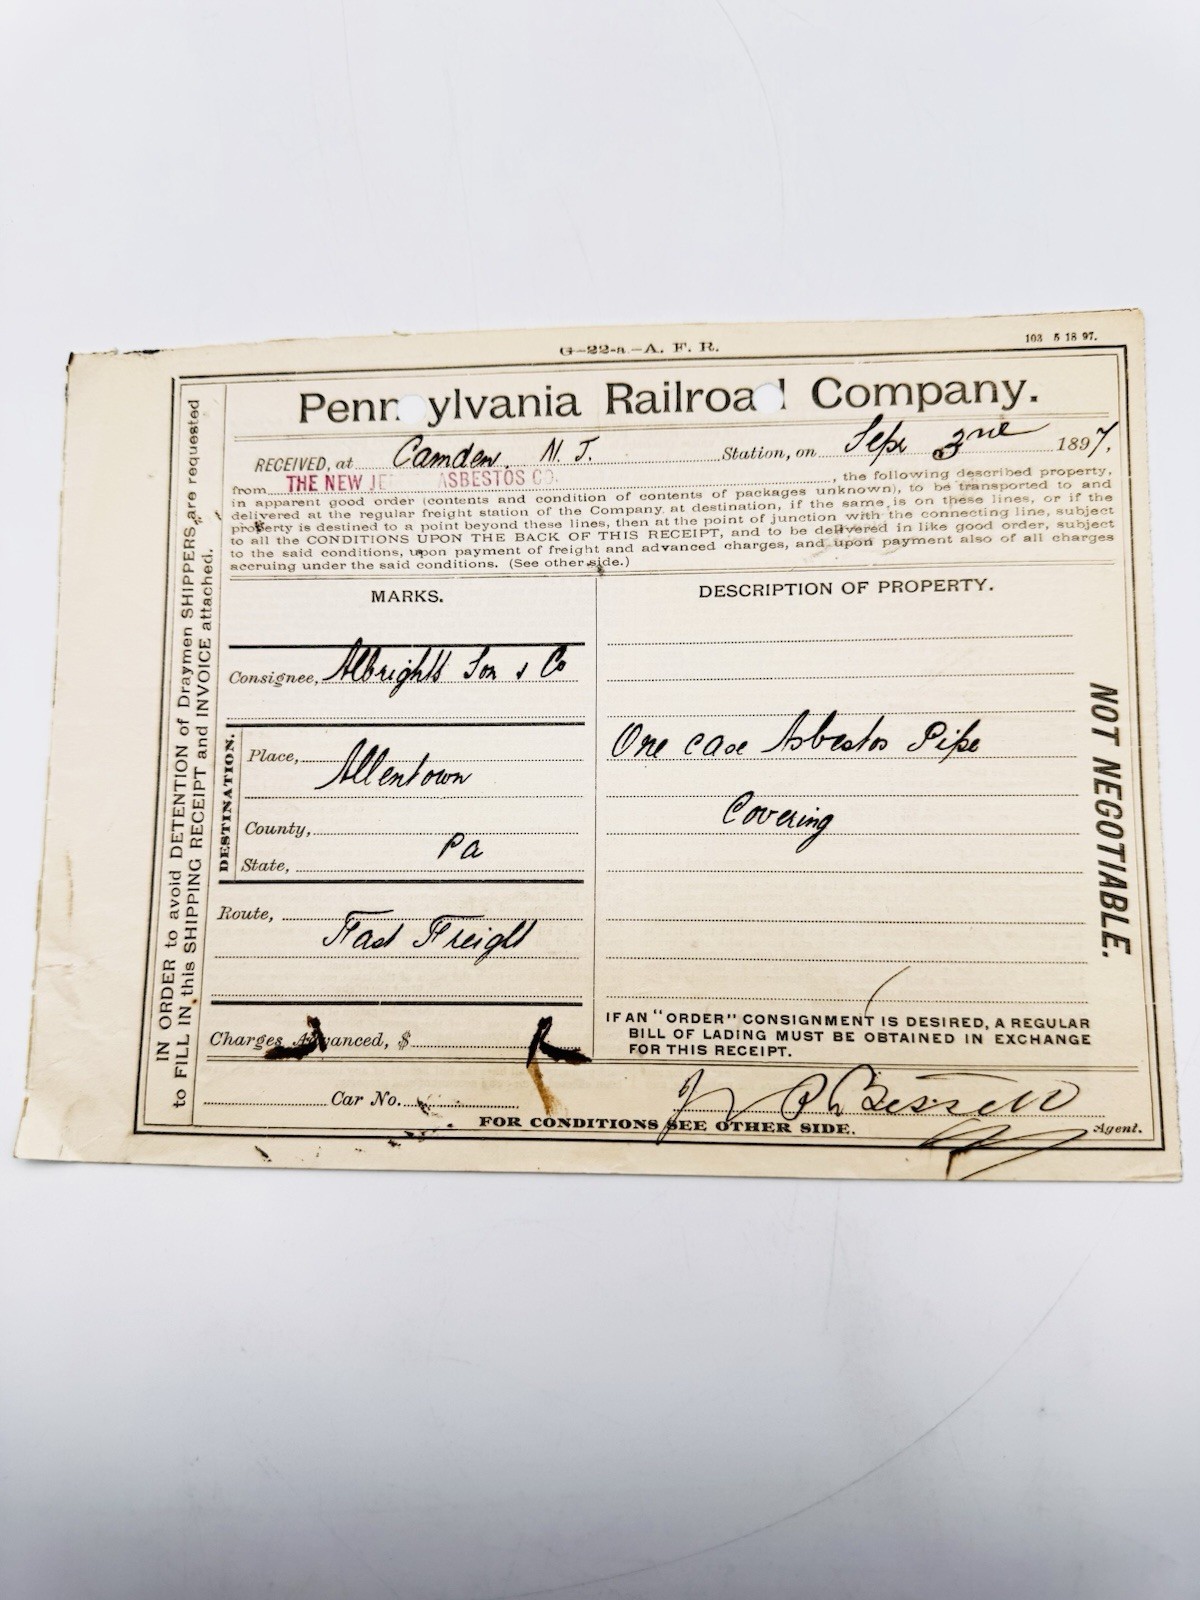 G-22-a-A. F. R.
103 5 18 97.
Pennylvania Railroad Company.
RECEIVED, at Camden, N. J. Station, on Sept 3rd 1897,
from THE NEW JE ASBESTOS CO. , the following described property,
in apparent good order (contents and condition of contents of packages unknown), to be transported to and
delivered at the regular freight station of the Company at destination, if the same is on these lines, or if the
property is destined to a point beyond these lines, then at the point of junction with the connecting line, subject
to all the CONDITIONS UPON THE BACK OF THIS RECEIPT, and to be delivered in like good order, subject
to the said conditions, upon payment of freight and advanced charges, and upon payment also of all charges
accruing under the said conditions. (See other side.)
IN ORDER to avoid DETENTION of Draymen SHIPPERS are requested
to FILL IN this SHIPPING RECEIPT and INVOICE attached.
MARKS.
Consignee, Albrights Son & Co
DESTINATION.
Place, Allentown
County,
State, Pa
Route, Fast Freight
Charges Advanced, $
Car No.
DESCRIPTION OF PROPERTY.
One case Asbestos Pipe
Covering
NOT NEGOTIABLE.
IF AN "ORDER" CONSIGNMENT IS DESIRED, A REGULAR
BILL OF LADING MUST BE OBTAINED IN EXCHANGE
FOR THIS RECEIPT.
Agent.
FOR CONDITIONS SEE OTHER SIDE.